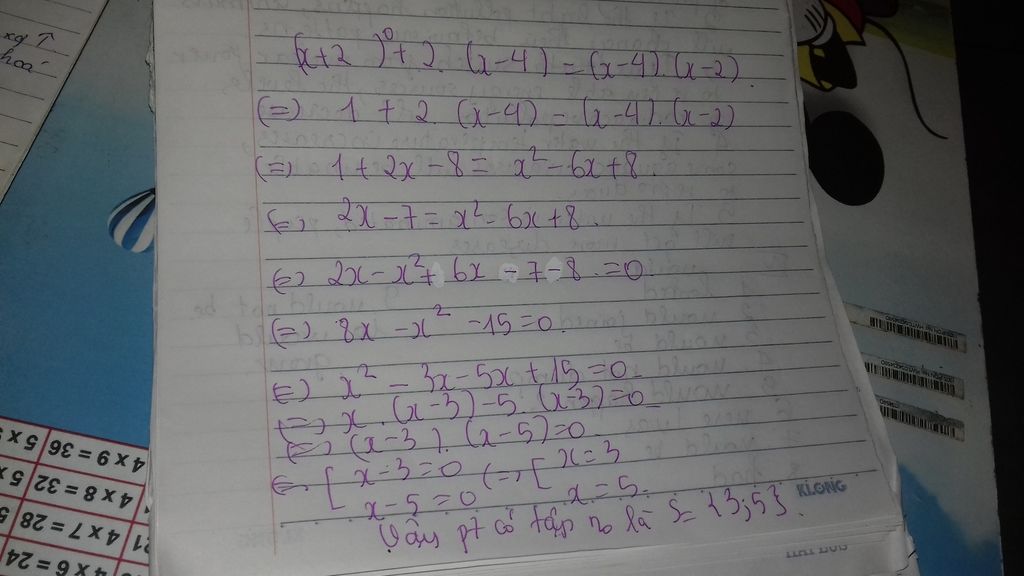 xq ↑
hoá
(x+2)⁰ + 2. (x-4) = (x-4).(x-2)
(=) 1 + 2. (x-4) = (x-4).(x-2)
(=) 1 + 2x - 8 = x² - 6x + 8
(=) 2x - 7 = x² - 6x + 8.
(=) 2x - x² + 6x - 7 - 8 = 0
(=) 8x - x² - 15 = 0.
(=) x² - 3x - 5x + 15 = 0
(=) x.(x-3) - 5.(x-3) = 0
(=) (x-3).(x-5) = 0
(=) [ x-3=0 (=) [ x=3
x-5=0 x=5.
Vậy pt có tập no là S= {3;5}.
KLONG
4 x 9 = 36
4 x 8 = 32
4 x 7 = 28
4 x 6 = 24
5 x
5 x
21